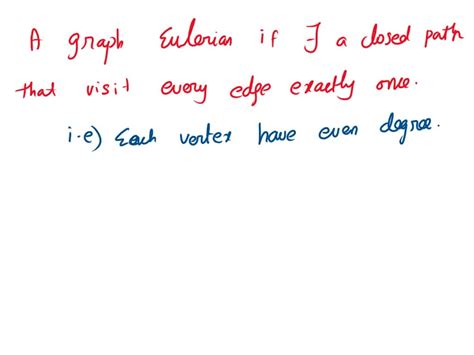 A graph Eulerian if ∃ a closed path
that visit every edge exactly once.
i.e) Each vertex have even degree.